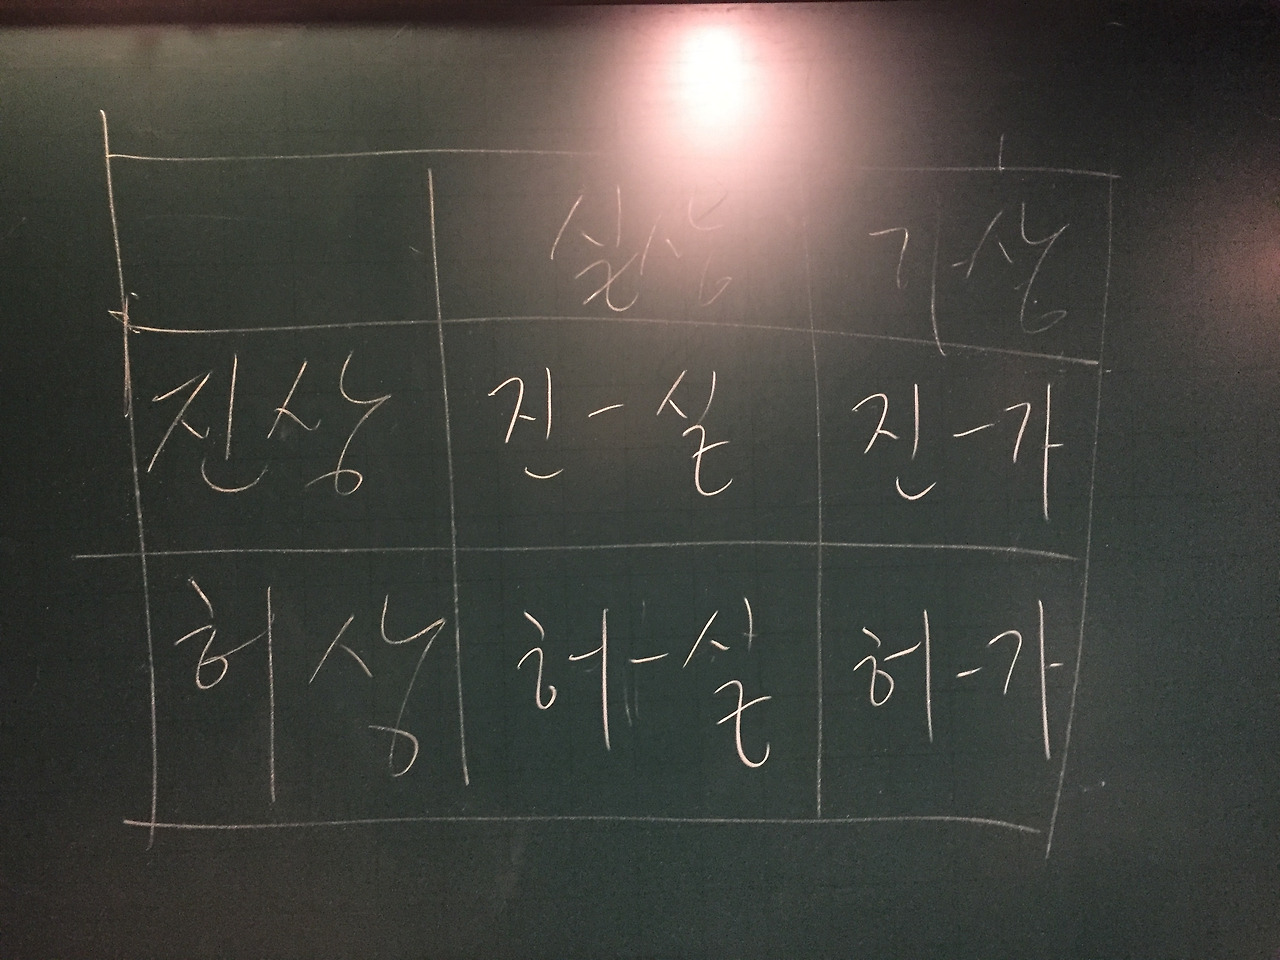 실상 가상
진상 진-실 진-가
허상 허-실 허-가